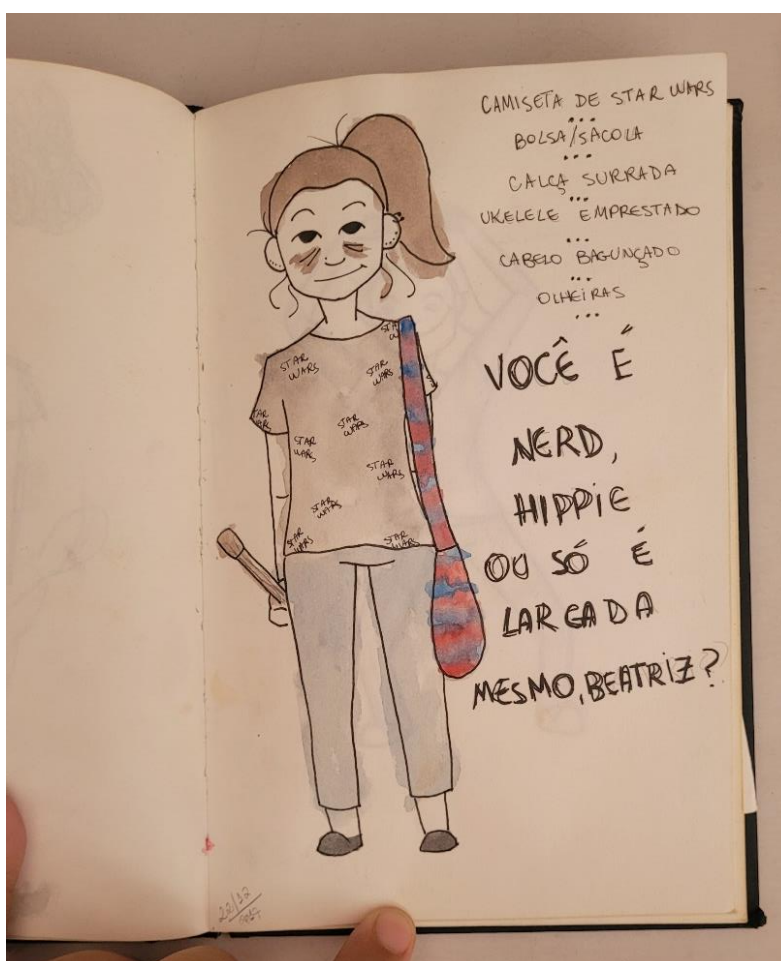 CAMISETA DE STAR WARS
...
BOLSA/SACOLA
...
CALÇA SURRADA
...
UKELELE EMPRESTADO
...
CABELO BAGUNÇADO
...
OLHEIRAS
...
VOCÊ É
NERD,
HIPPIE
OU SÓ É
LARGADA
MESMO, BEATRIZ?
STAR
WARS
STAR
WARS
STAR
WARS
STAR
WARS
STAR
WARS
STAR
WARS
STAR
WARS
STAR
WARS
STAR
WARS
22/12